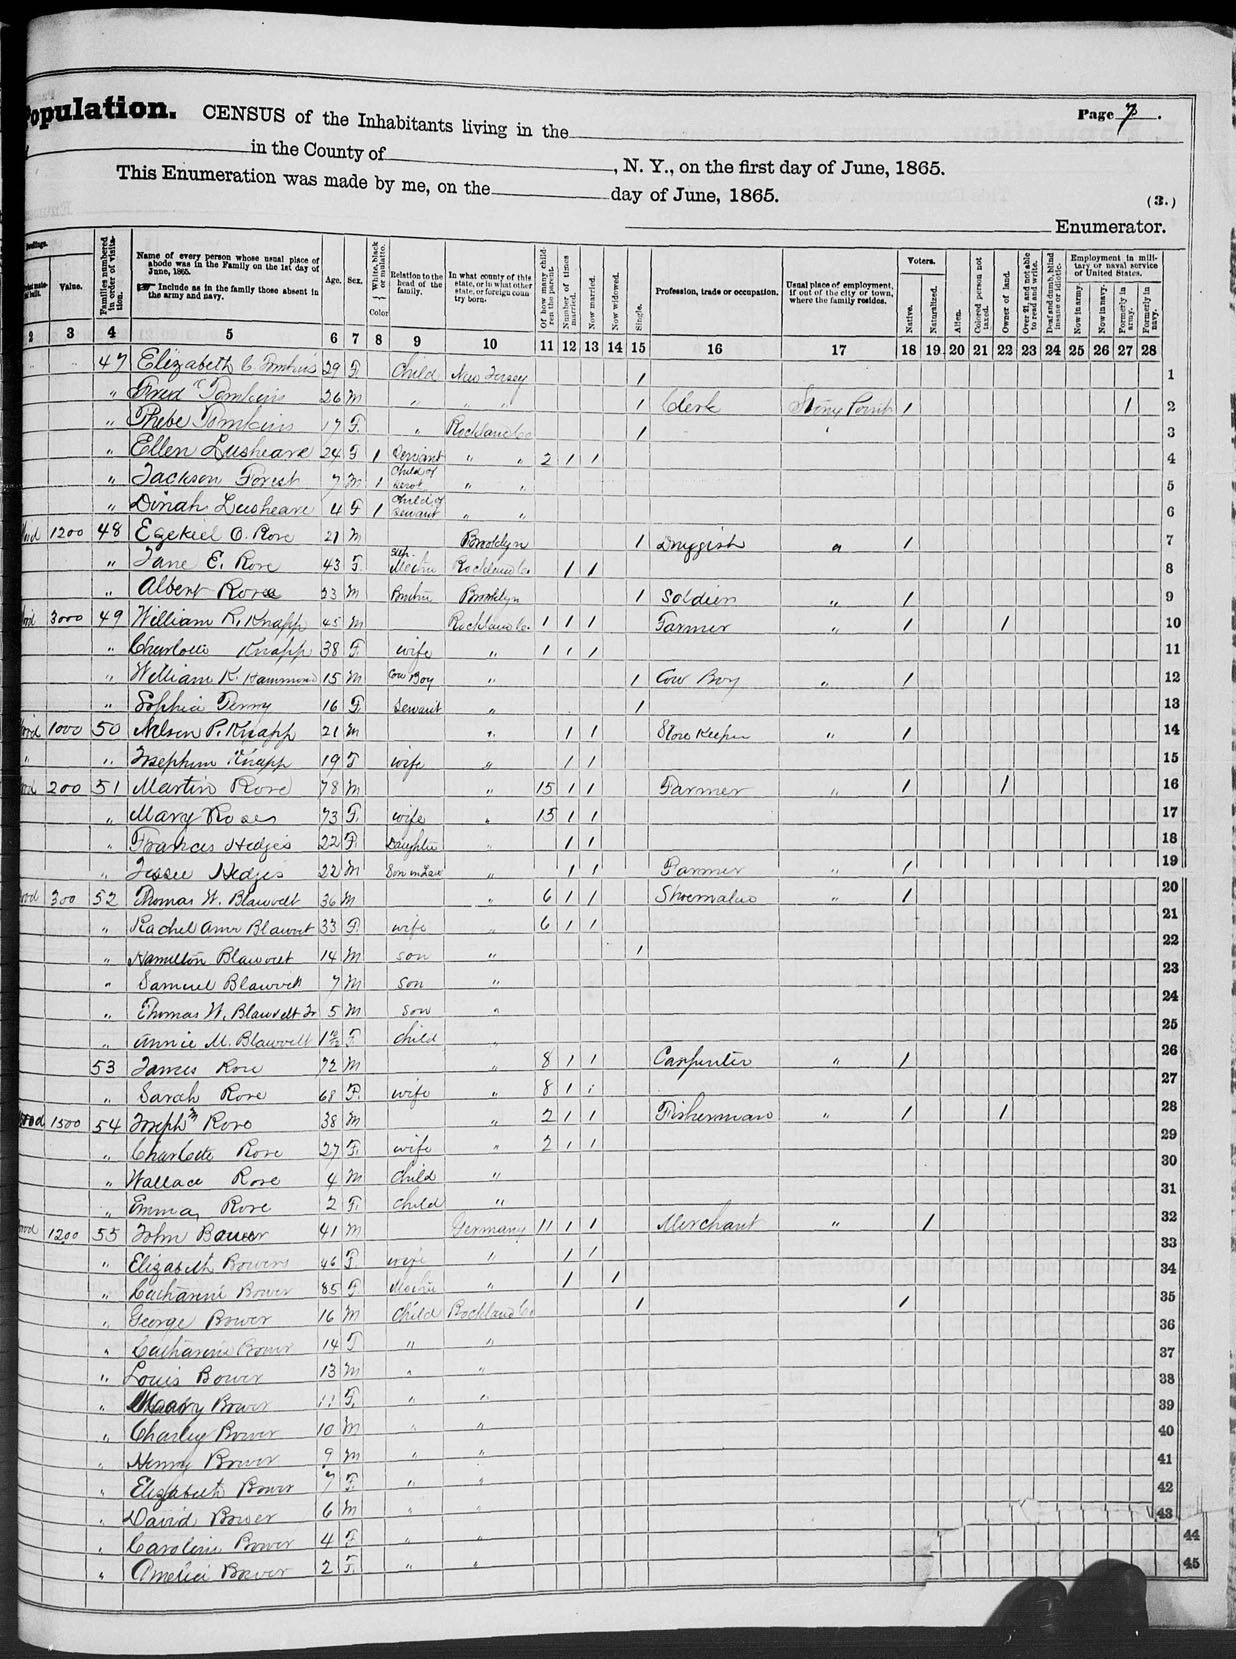 Population. CENSUS of the Inhabitants living in the Page 7.
in the County of , N. Y., on the first day of June, 1865.
This Enumeration was made by me, on the day of June, 1865.
(3.)
Enumerator.
Value. Families numbered in order of visitation. Name of every person whose usual place of abode was in the Family on the 1st day of June, 1865. Include as in the family those absent in the army and navy. Age. Sex. White, black or mulatto. Color Relation to the head of the family. In what county of this state, or in what other state, or foreign country born. Of how many children the parent. Number of times married. Now married. Now widowed. Single. Profession, trade or occupation. Usual place of employment, if out of the city or town, where the family resides. Voters. Native. Naturalized. Alien. Colored person not taxed. Owner of land. Over 21 and not able to read and write. Deaf and dumb, blind insane or idiotic. Employment in military or naval service of United States. Now in army. Now in navy. Formerly in army. Formerly in navy.
2 3 4 5 6 7 8 9 10 11 12 13 14 15 16 17 18 19 20 21 22 23 24 25 26 27 28
47 Elizabeth C. Tomkins 29 F Child New Jersey 1 1
" Fred Tomkins 26 M " " " 1 Clerk Stony Point 1 1 2
" Phebe Tomkins 17 F " Rockland Co. 1 3
" Ellen Lusheare 24 F 1 Servant " " 2 1 1 4
" Jackson Forest 7 M 1 Child of servt " " 5
" Dinah Lusheare 4 F 1 Child of Servant " " 6
1200 48 Ezekiel O. Rose 21 M Brooklyn 1 Druggist " 1 7
" Jane E. Rose 43 F Step Mother Rockland Co. 1 1 8
" Albert Rose 23 M Brother Brooklyn 1 Soldier " 1 9
3000 49 William R. Knapp 45 M Rockland Co. 1 1 1 Farmer " 1 1 10
" Charlotte Knapp 38 F wife " 1 1 1 11
" William K. Hammond 15 M Cow Boy " 1 Cow Boy " 1 12
" Sophia Penny 16 F Servant " 1 13
1000 50 Nelson P. Knapp 21 M " 1 1 Store Keeper " 1 14
" " Josephine Knapp 19 F wife " 1 1 15
200 51 Martin Rose 78 M " 15 1 1 Farmer " 1 1 16
" Mary Rose 73 F wife " 15 1 1 17
" Frances Hedges 22 F Daughter " 1 1 18
" Jessee Hedges 22 M Son in Law " 1 1 Farmer " 1 19
300 52 Thomas W. Blauvelt 36 M " 6 1 1 Shoemaker " 1 20
" Rachel Ann Blauvelt 33 F wife " 6 1 1 21
" Hamilton Blauvelt 14 M son " 1 22
" Samuel Blauvelt 7 M son " 23
" Thomas W. Blauvelt Jr 5 M son " 24
" Annie M. Blauvelt F child " 25
53 James Rose 72 M " 8 1 1 Carpenter " 1 26
" Sarah Rose 68 F wife " 8 1 1 27
wood 1500 54 Joseph Rose 38 M " 2 1 1 Fisherman " 1 1 28
" Charlotte Rose 27 F wife " 2 1 1 29
" Wallace Rose 4 M Child " 30
" Emma Rose 2 F Child " 31
1200 55 John Bower 41 M Germany 11 1 1 Merchant " 1 32
" Elizabeth Bowers 46 F wife " 1 1 33
" Catharine Bower 85 F Mother " 1 1 34
" George Bower 16 M Child Rockland Co. 1 1 35
" Catharine Bower 14 F " " 36
" Louis Bower 13 M " " 37
" Mary Bower 11 F " " 38
" Charley Bower 10 M " " 39
" Henry Bower 9 M " " 40
" Elizabeth Bower 7 F " " 41
" David Bower 6 M " " 42
" Caroline Bower 4 F " " 43
" Amelia Bower 2 F " " 44
45